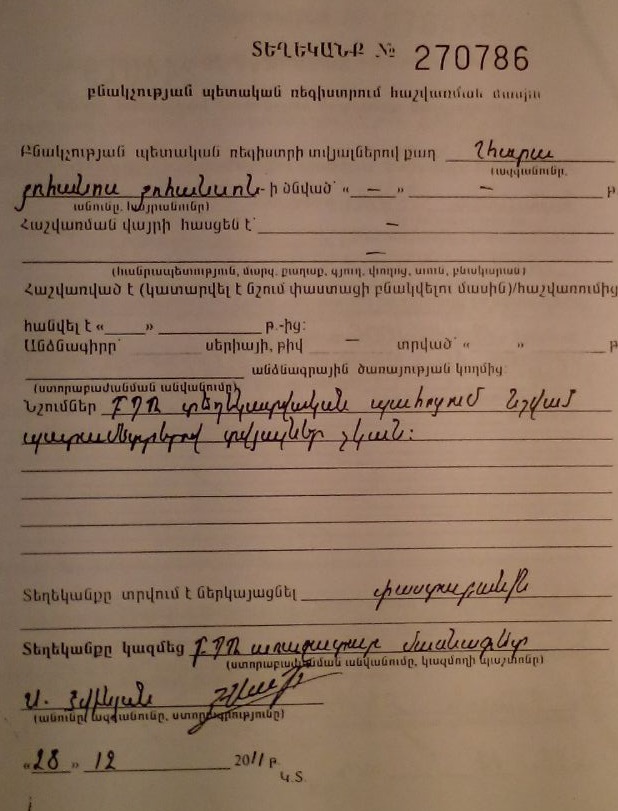 ՏԵՂԵԿԱՆՔ № 270786
բնակչության պետական ռեգիստրում հաշվառման մասին
Բնակչության պետական ռեգիստրի տվյալներով քաղ
(ազգանունը,
-ի ծնված՝ «—» — թ
անունը, հայրանունը)
Հաշվառման վայրի հասցեն է՝ —
—
(հանրապետություն, մարզ, քաղաք, գյուղ, փողոց, տուն, բնակարան)
Հաշվառված է (կատարվել է նշում փաստացի բնակվելու մասին)/հաշվառումից
հանվել է «____» ________ թ.-ից:
Անձնագիրը՝ սերիայի, թիվ — տրված՝ « » թ
անձնագրային ծառայության կողմից
(ստորաբաժանման անվանումը)
Նշումներ ԲՊՌ տեղեկատվական պահոցում նշված
պարամետրերով տվյալներ չկան:
Տեղեկանքը տրվում է ներկայացնել փաստաբանին
Տեղեկանքը կազմեց ԲՊՌ առաջատար մասնագետ
(ստորաբաժանման անվանումը, կազմողի պաշտոնը)
(անունը, ազգանունը, ստորագրությունը)
«28» 12 2011 թ.
Կ.Տ.